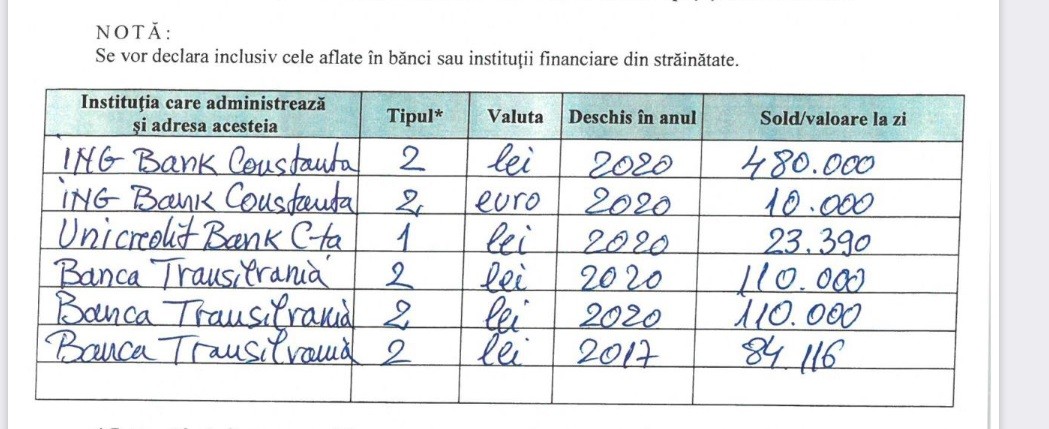 NOTĂ:
Se vor declara inclusiv cele aflate în bănci sau instituţii financiare din străinătate.
Instituţia care administrează şi adresa acesteia Tipul* Valuta Deschis în anul Sold/valoare la zi
ING Bank Constanta 2 lei 2020 480.000
ING Bank Constanta 2 euro 2020 10.000
Unicredit Bank C-ta 1 lei 2020 23.390
Banca Transilvania 2 lei 2020 110.000
Banca Transilvania 2 lei 2020 110.000
Banca Transilvania 2 lei 2017 84.116